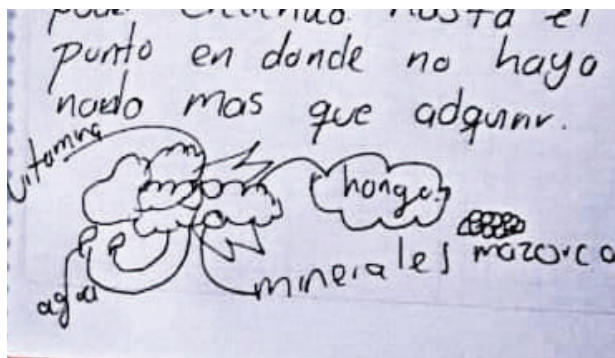 hasta el
punto en donde no haya
nada mas que adquirir.
vitamina
hongo
minerales mazorca
agua